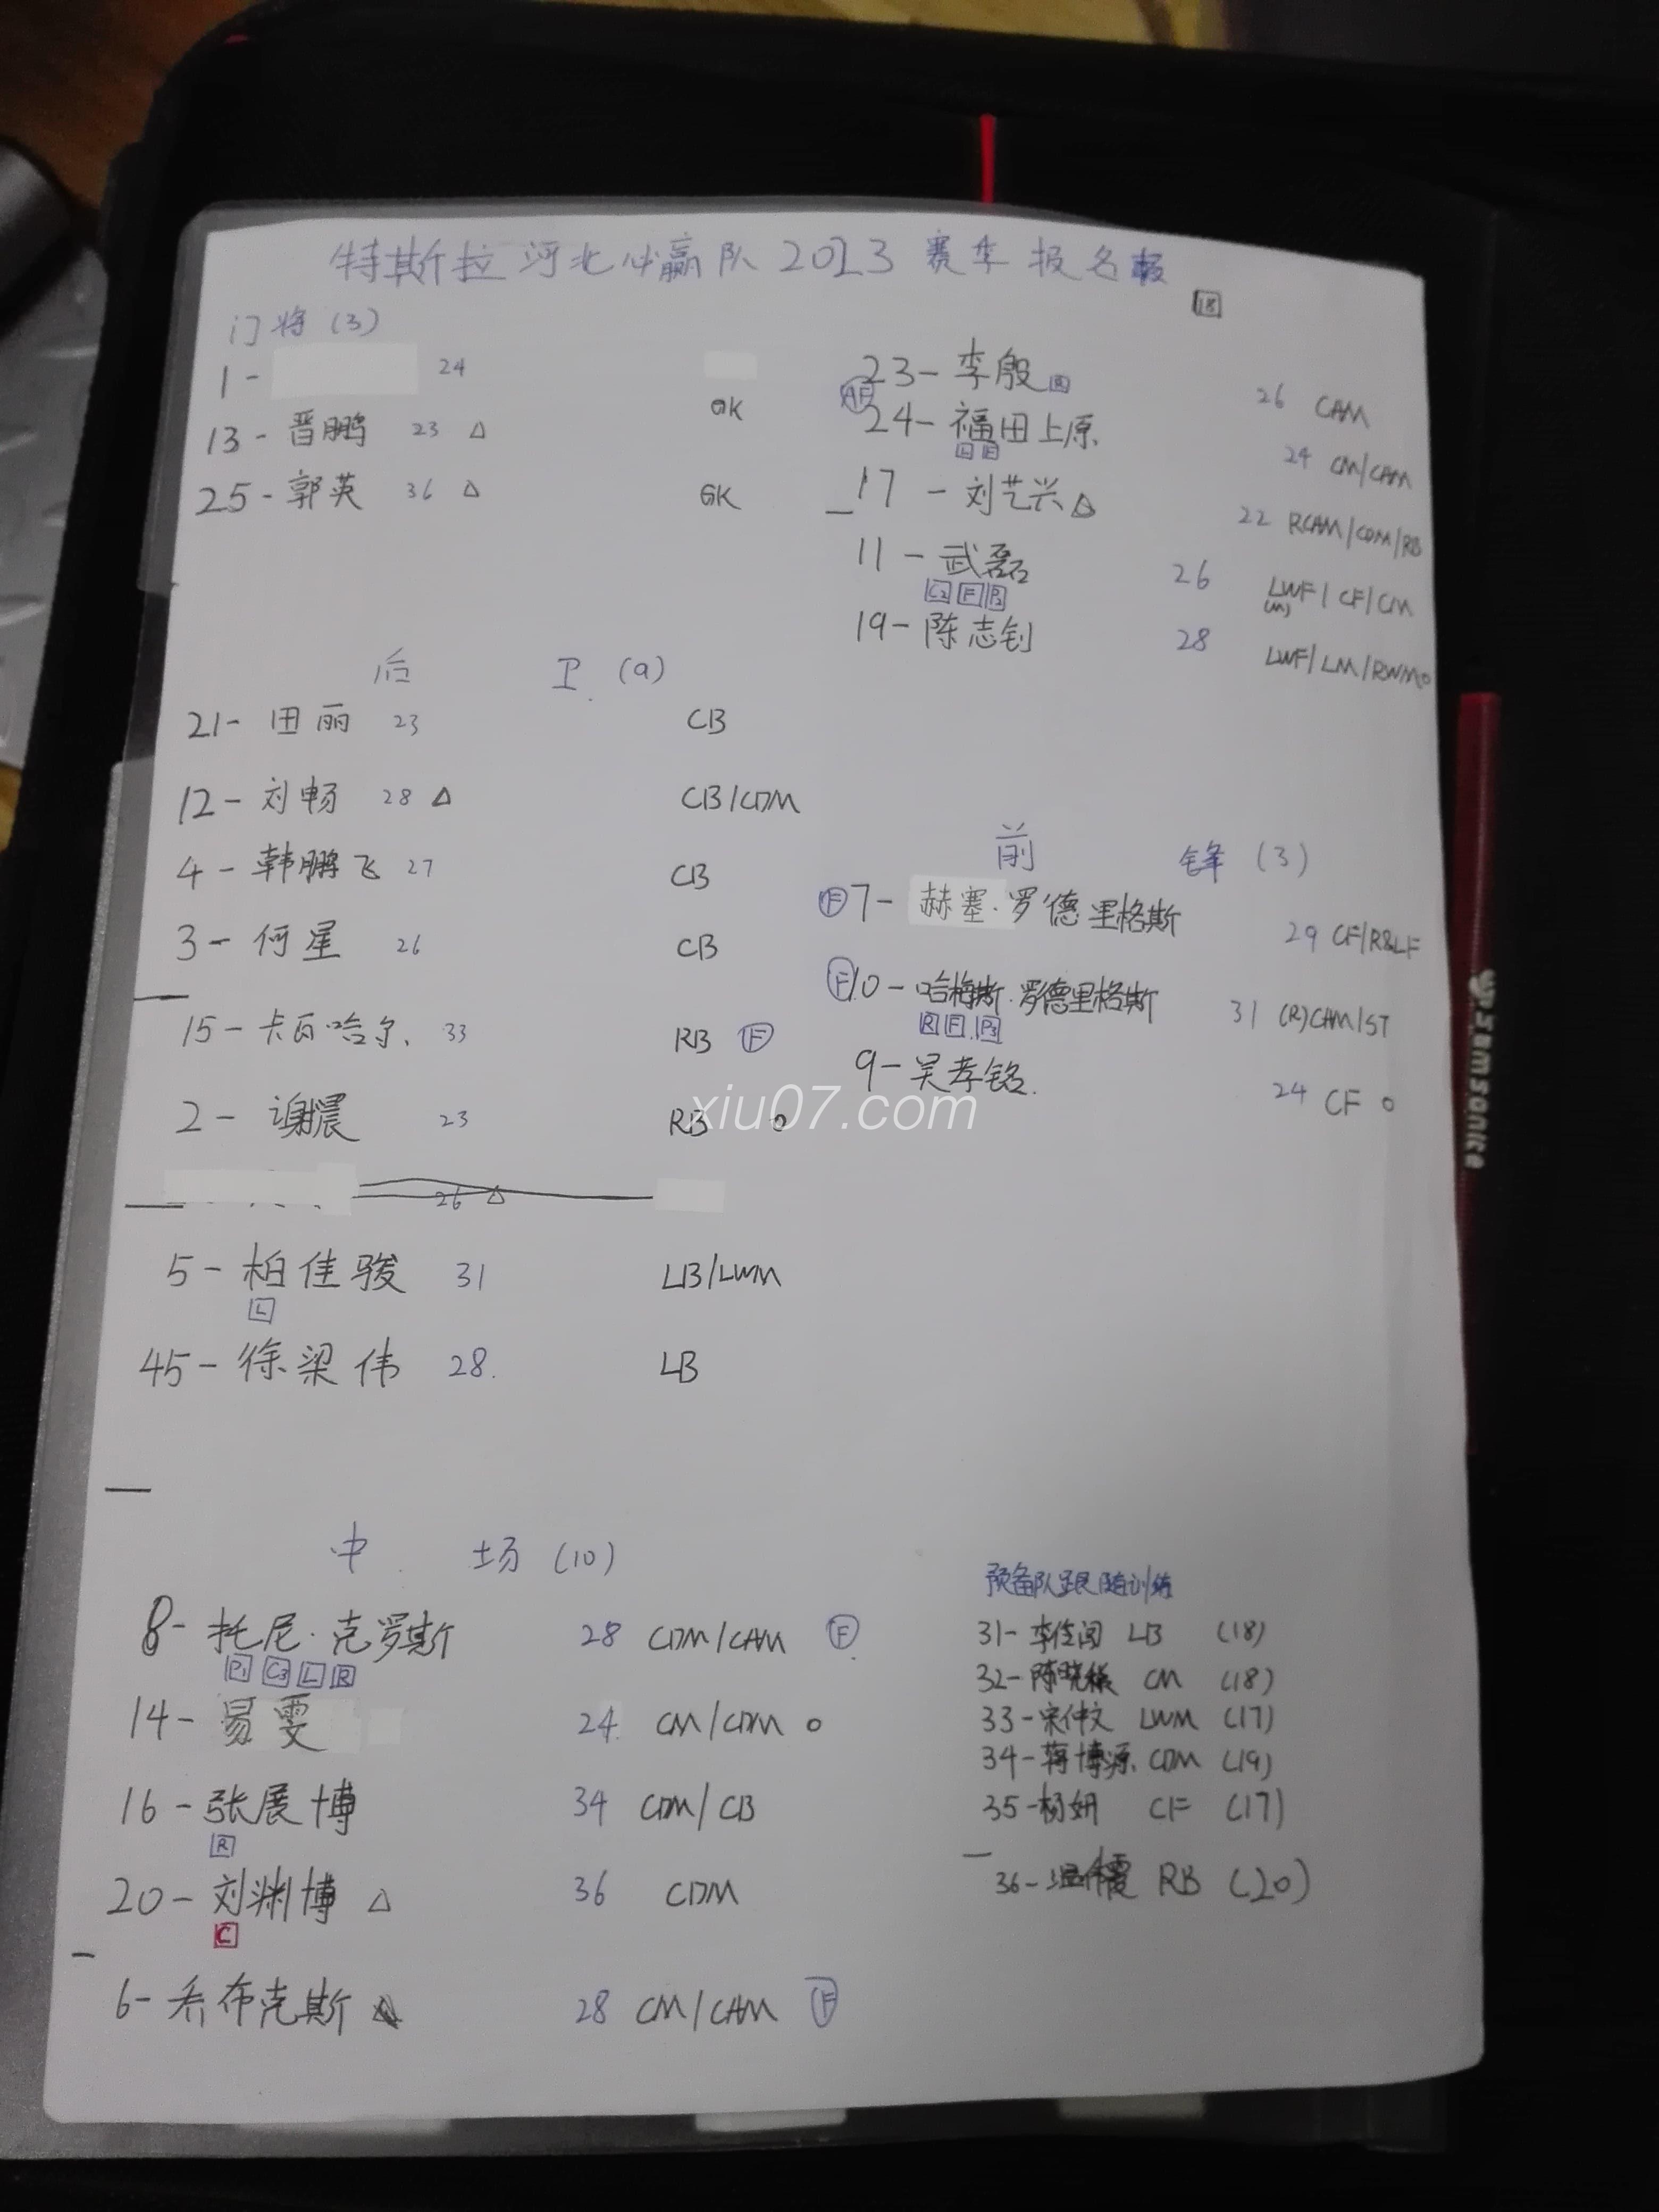 特斯拉河北必赢队2023赛季报名报
18
门将 (3)
1- 24
13-晋鹏 23 △ GK
25-郭英 36 △ GK
后 卫 (9)
21-田丽 23 CB
12-刘畅 28 △ CB/CDM
4-韩鹏飞 27 CB
3-何星 26 CB
15-卡瓦哈尔 33 RB F
2-谢晨 23 RB o
26 △
5-柏佳骏 31 LB/LWM
L
45-徐梁伟 28. LB
中 场 (10)
8-托尼·克罗斯 28 CDM/CAM F
P1 C3 L R
14-易雯 24 CM/CDM o
16-张展博 34 CDM/CB
R
20-刘渊博 △ 36 CDM
C
6-乔布克斯 28 CM/CAM F
23-李殷 R 26 CAM
AF 24-福田上原 24 CM/CAM
17-刘艺兴 △ 22 RCAM/CDM/RB
11-武磊 26 LWF/CF/CM
(M)
C2 F P2
19-陈志钊 28 LWF/LM/RWM o
前 锋 (3)
F 7-赫塞·罗德里格斯 29 CF/R&LF
F 10-哈梅斯·罗德里格斯 31 (R)CAM/ST
R F P3
9-吴孝铭 24 CF o
预备队跟随训练
31-李佳闰 LB (18)
32-陈晓 CM (18)
33-宋仲文 LWM (17)
34-蒋博源 CDM (19)
35-杨妍 CF (17)
36- RB (20)
xiu07.com
Samsonite